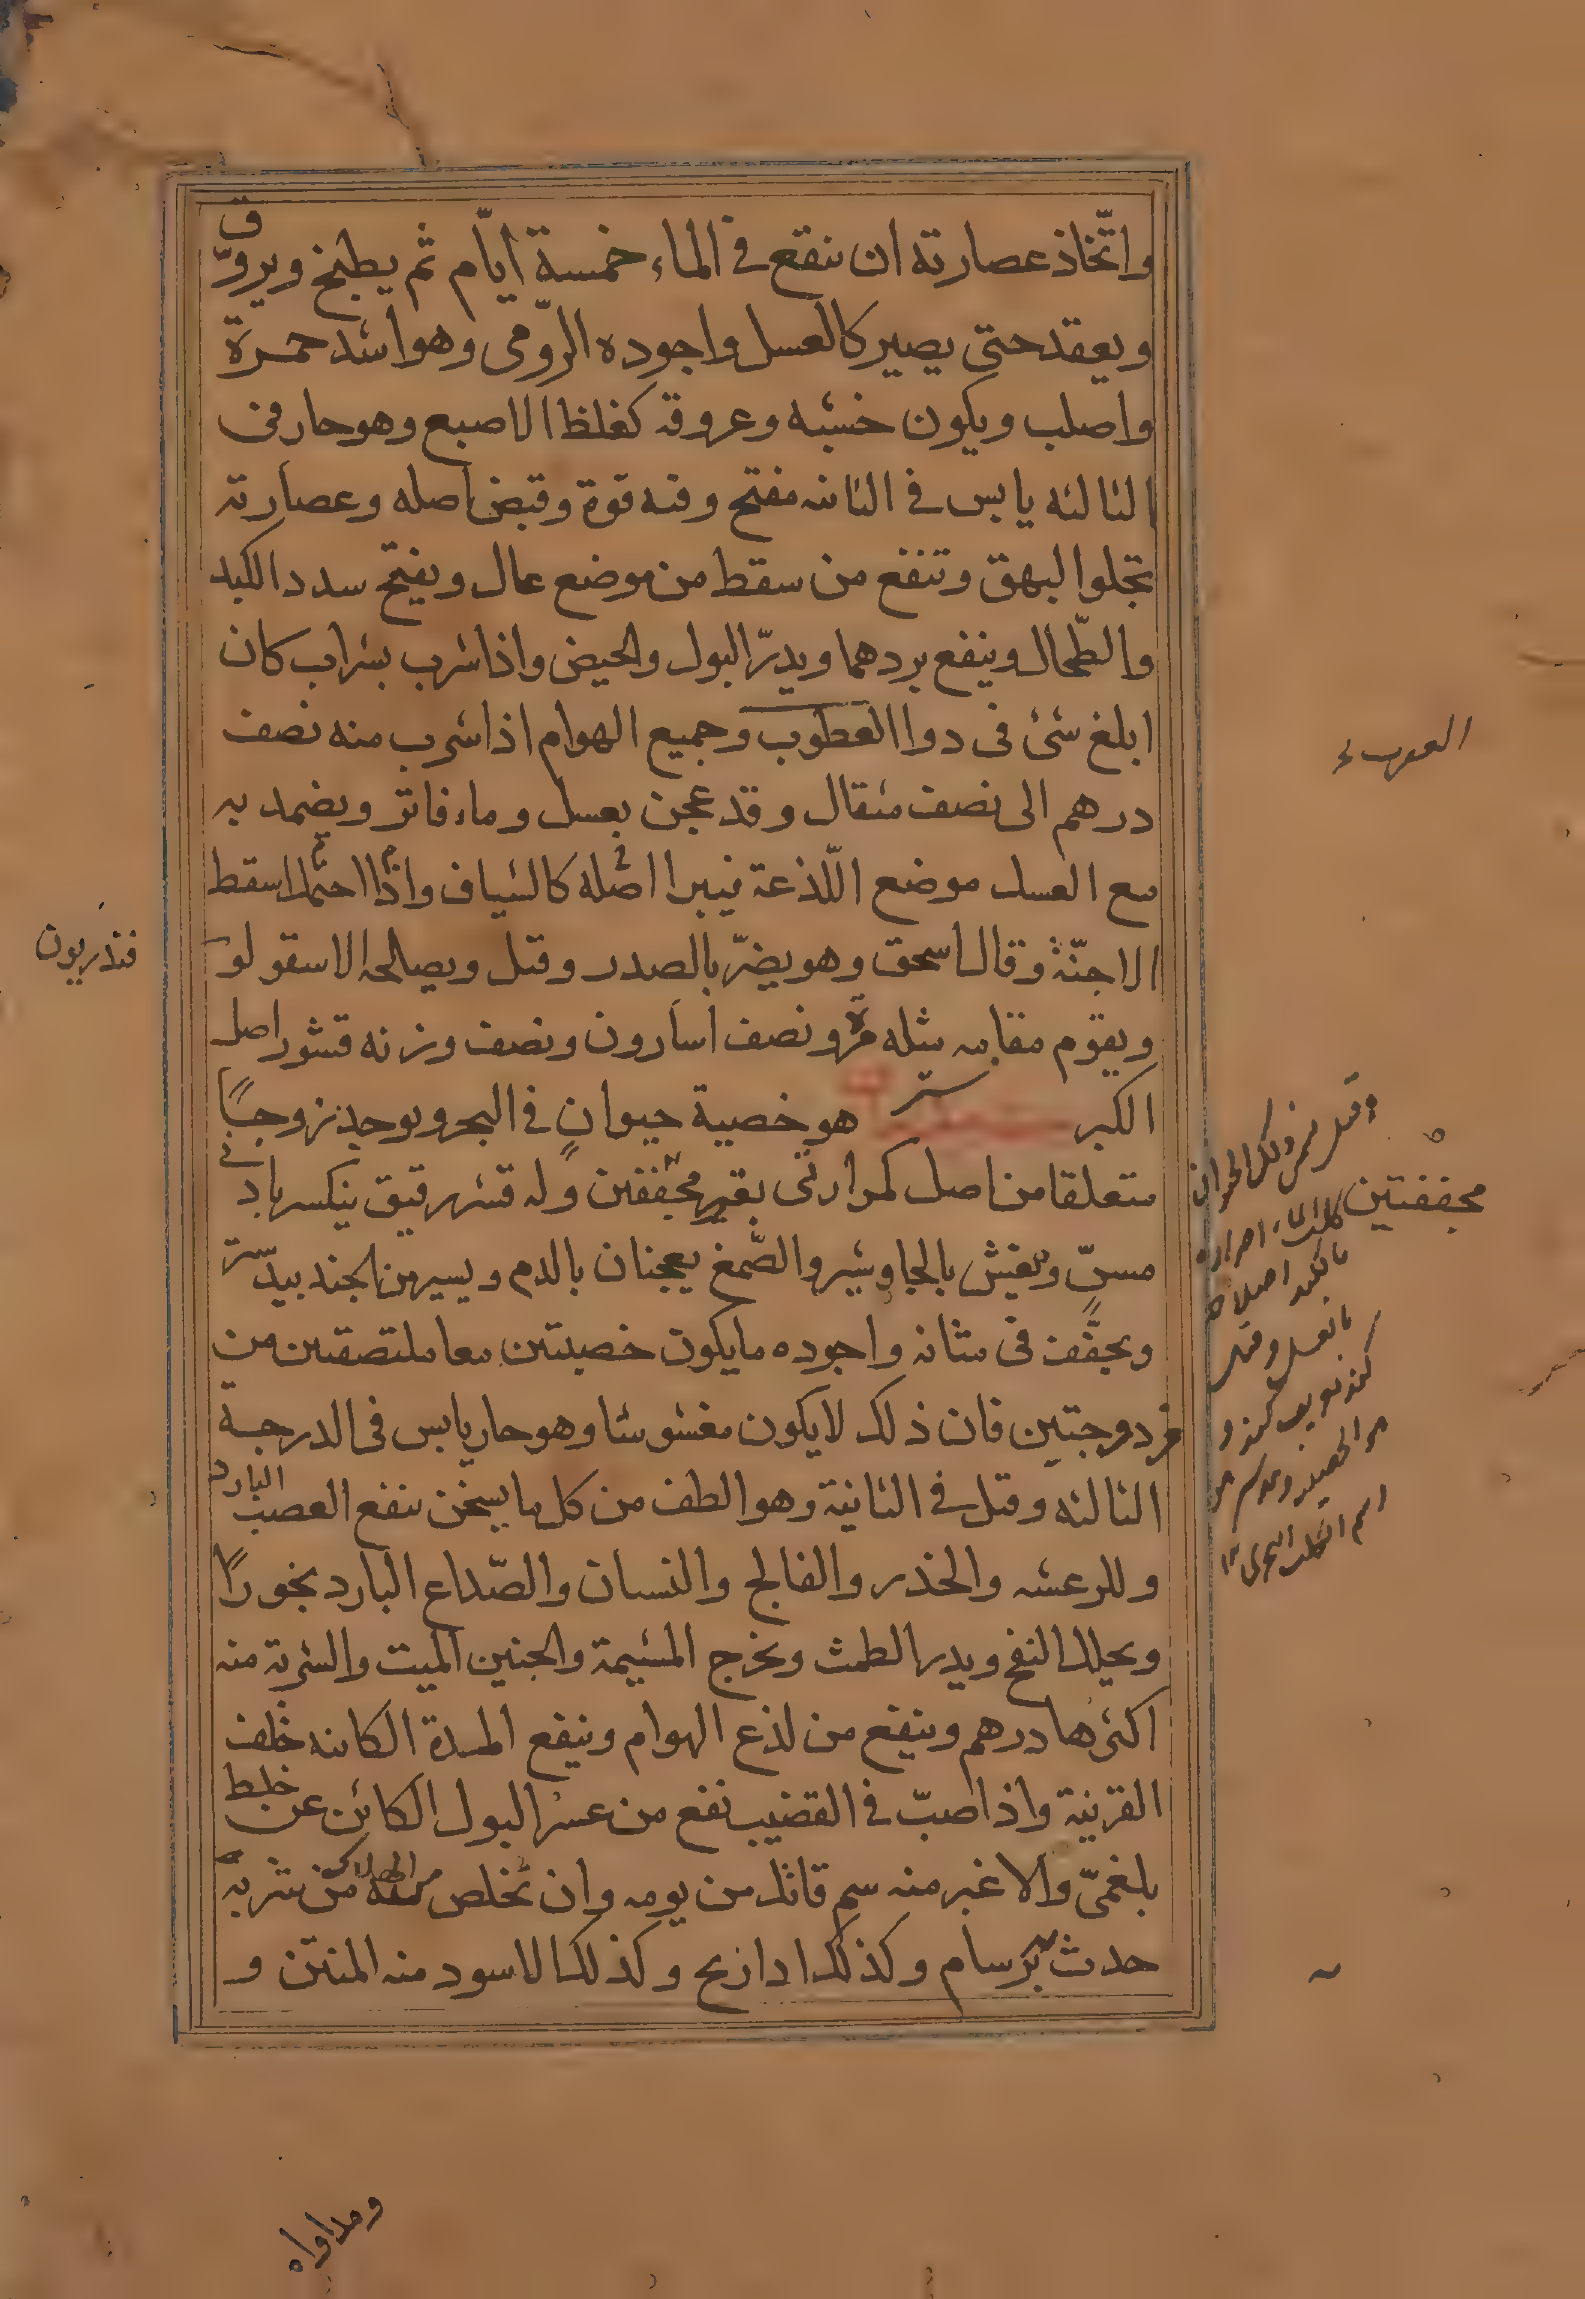 واتّخاذ عصارته ان ينقع في الماء خمسة ايّام ثم يطبخ ويروّق
ويعقد حتى يصير كالعسل واجوده الرّومى وهو اشد حمرة
واصلب ويكون خشبه وعروقه كغلظ الاصبع وهو حار فى
الثالثه يابس في الثانيه مفتح وفيه قوة وقبض اصله وعصارته
تجلوا البهق وتنفع من سقط من موضع عال ويفتح سدد الكبد
والطّحال وينفع بردهما ويدرّ البول والحيض واذا شرب بشراب كان
ابلغ شئ فى دوا العطوب وجميع الهوام اذا شرب منه نصف
درهم الى نصف مثقال وقد عجن بعسل وماء فاتر ويضمد به
مع العسل موضع اللّذعة فيبرا اصله كالشياف واذا احتمل اسقط
الاجنّة وقال اسحق وهو يضرّ بالصدر وقيل ويصالحه الاسقولو
فندريون
ويقوم مقامه مثله مرة ونصف اسارون ونصف وزنه قشور اصل
الكبر هو خصية حيوان في البحر ويوجد زوجًا
متعلقا من اصل كمرارتى بقير مجففين وله قشر رقيق ينكسر باد
مجففتين
مسّ ويغش بالجاوشير والصّمغ يعجنان بالدم ويسير من الجند بيدستر
ويجفّف فى مثانه واجوده ما يكون خصيتين معا ملتصقتين من
مزدوجتين فان ذلك لا يكون مغشوشا وهو حار يابس فى الدرجة
الثالثه وقيل في الثانية وهو الطف من كل ما يسخن ينفع العصب البارد
وللرعشه والخذر والفالج والنسيان والصّداع البارد بخورًا
ويحلل النفخ ويدر الطمث ويخرج المشيمة والجنين الميت والشربة منه
اكثرها درهم وينفع من لذع الهوام وينفع المدة الكائنه خلف
القرنية واذا صبّ في القضيب نفع من عسر البول الكائن عن خلط
بلغمىّ والاغبر منه سم قاتل من يومه وان تخلص من الهلاك من شربه
حدث برسام وكذلك اذا زنخ وكذلك الاسود منه المنتن و
ومداواه